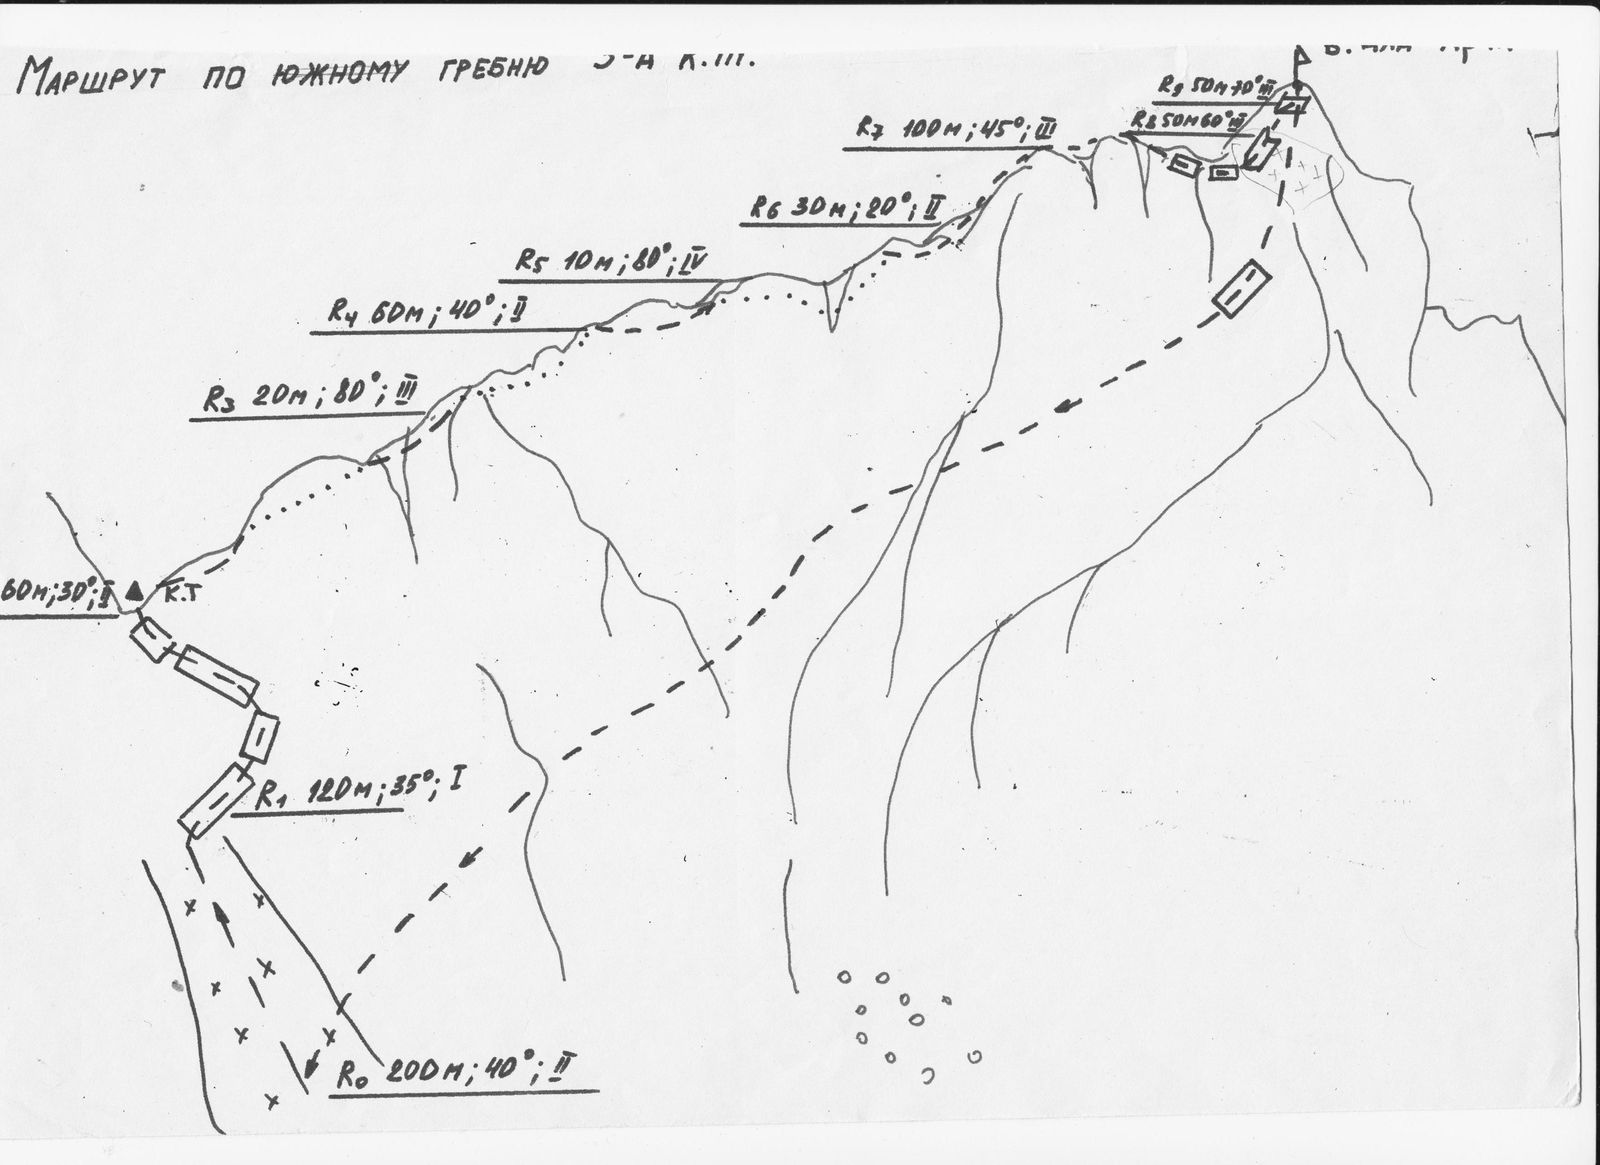 Маршрут по южному гребню
R9 50м 70° III
R8 50м 60° III
R7 100м; 45°; III
R6 30м; 20°; II
R5 10м; 80°; IV
R4 60м; 40°; II
R3 20м; 80°; III
60м; 30°; II
К.Т
R1 120м; 35°; I
R0 200м; 40°; II